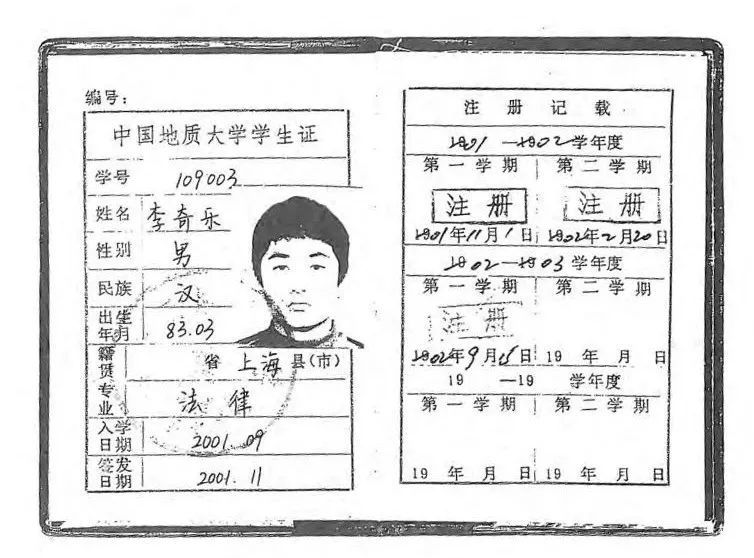 编号：
中国地质大学学生证
学号 109003
姓名 李奇乐
性别 男
民族 汉
出生年月 83.03
籍贯 省 上海 县(市)
专业 法律
入学日期 2001.09
签发日期 2001.11
注册记载
1901—1902学年度
第一学期 第二学期
注册 注册
1901年11月1日 1902年2月20日
1902—1903学年度
第一学期 第二学期
注册
1902年9月15日 19 年 月 日
19 —19 学年度
第一学期 第二学期
19 年 月 日 19 年 月 日